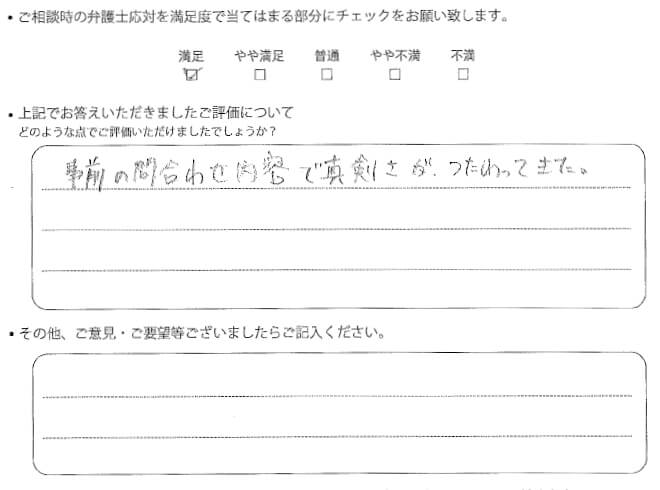 • ご相談時の弁護士応対を満足度で当てはまる部分にチェックをお願い致します。
満足 やや満足 普通 やや不満 不満
☑ □ □ □ □
• 上記でお答えいただきましたご評価について
どのような点でご評価いただけましたでしょうか？
事前の問合わせ内容で真剣さが、つたわってきた。
• その他、ご意見・ご要望等ございましたらご記入ください。